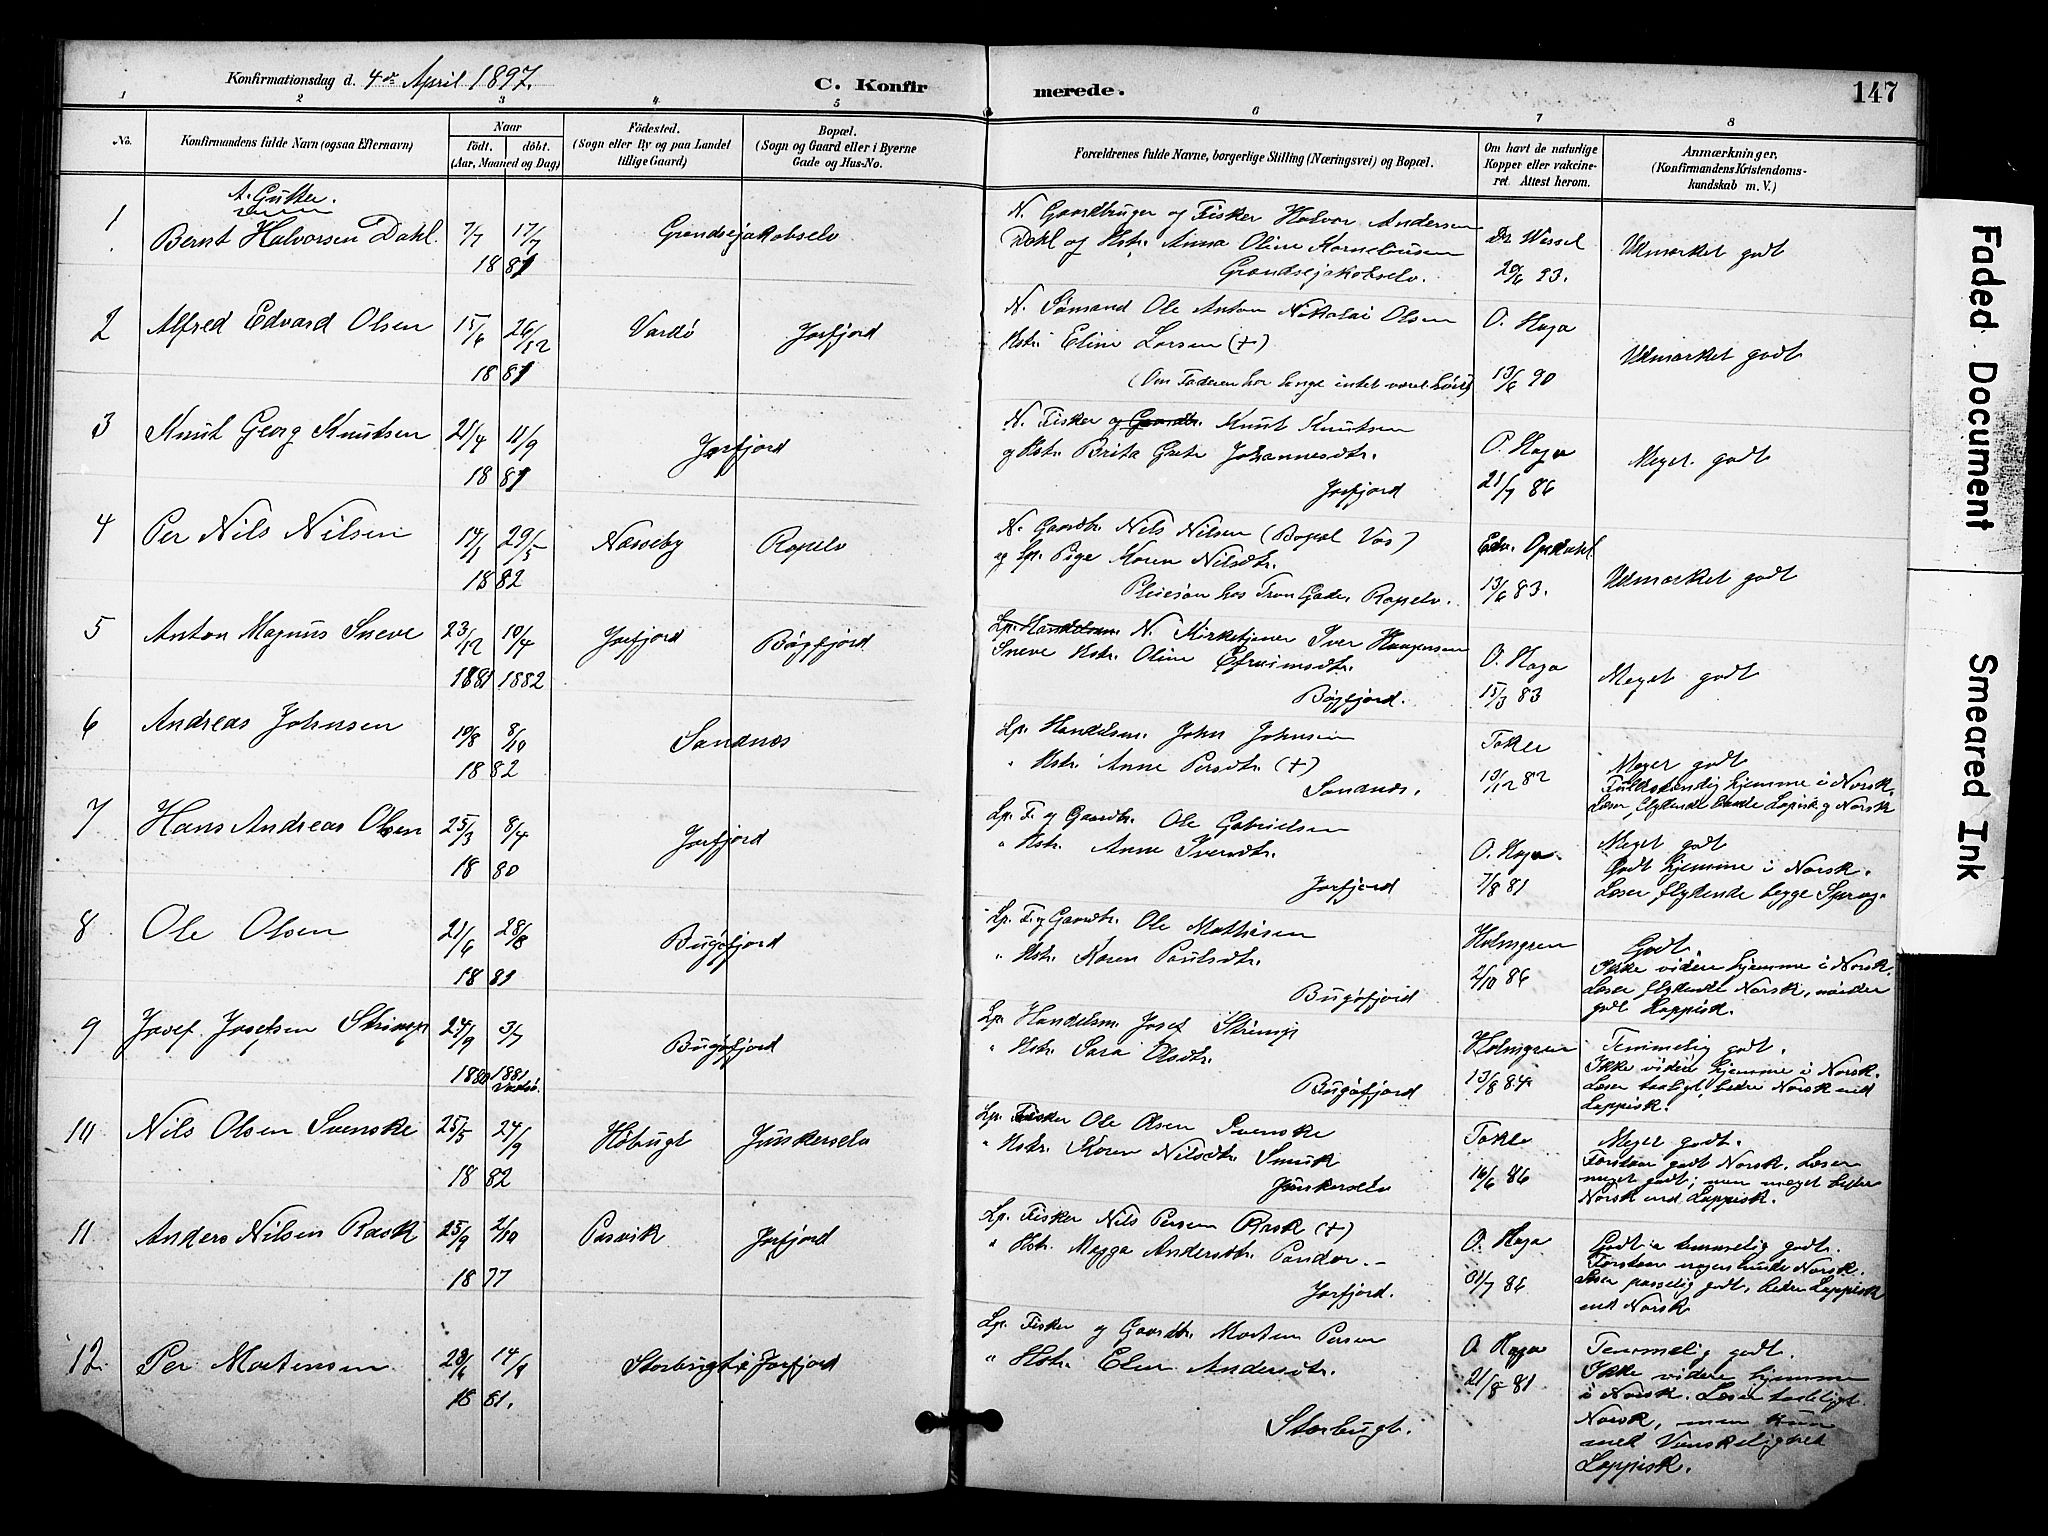 Konfirmationsdag d. 4de April 1897.
C. Konfirmerede.
147
1 2 3 4 5 6 7 8
No.
Konfirmandens fulde Navn (ogsaa Efternavn)
Naar
födt. döbt.
(Aar, Maaned og Dag)
Födested.
(Sogn eller By og paa Landet
tillige Gaard)
Bopæl.
(Sogn og Gaard eller i Byerne
Gade og Hus-No.
Forældrenes fulde Navne, borgerlige Stilling (Næringsvei) og Bopæl.
Om havt de naturlige
Kopper eller vakcine-
ret. Attest herom.
Anmærkninger,
(Konfirmandens Kristendoms-
kundskab m. V.)
A. Gutter.
1 Bernt Halvorsen Dahl. 7/7 17/7 1881 Grandsejakobselv
N. Gaardbruger og Fisker Halvor Andersen
Dahl og Hstr. Anna Oline Korneliusen
Grandsejakobselv.
Dr Wessel
20/6 93.
Udmærket godt
2 Alfred Edvard Olsen 15/6 26/12 1881 Vardö Jarfjord
N. Sömand Ole Anton Nikolai Olsen
Hstr. Eline Larsen (+)
(Om Faderen har længe intet været hört)
O. Haga
13/6 90
Udmærket godt
3 Knut Georg Knutsen 21/4 11/9 1881 Jarfjord
N. Fisker og Gaardbr. Knut Knutsen
og Hstr. Brita Grete Johannesdtr.
Jarfjord
O. Haga
21/7 86
Meget godt
4 Per Nils Nilsen 14/1 29/5 1882 Næsseby Ropelv
N. Gaardbr. Nils Nilsen (Bopæl Vös)
og Lp. Pige Karen Nilsdtr.
Pleiesön hos Tron Gade, Ropelv.
Edv. Opdahl
13/6 83.
Udmærket godt
5 Anton Magnus Sneve 23/12 10/4 1881 1882 Jarfjord Bögfjord
Lp. Handelsm. N. Kirketjener Iver Haagensen
Sneve Hstr. Oline Efraimsdtr.
Bögfjord.
O. Haga
15/3 83
Meget godt
6 Andreas Johnsen 10/8 8/10 1882 Sandnes
Lp. Handelsm. John Johnsen
" Hstr. Anne Persdtr. (+)
Sandnes.
Takle
13/12 82
Meget godt
Fuldstændig hjemme i Norsk.
Læser flydende baade Lapisk og Norsk
7 Hans Andreas Olsen 25/3 8/4 1880 Jarfjord
Lp. F. og Gaardbr. Ole Gabrielsen
" Hstr. Anne Iversdtr.
Jarfjord
O. Haga.
7/8 81
Meget godt
Godt hjemme i Norsk.
Læser flydende begge Sprog.
8 Ole Olsen 21/6 28/8 1881 Bugöfjord
Lp. F. og Gaardbr. Ole Mathisen
" Hstr. Karen Paulsdtr.
Bugöfjord
Holmgren
2/10 86
Godt.
Ikke videre hjemme i Norsk.
Læser flydende Norsk, mindre
godt Lappisk.
9 Josef Josefsen Skrimp 24/9 3/7 1880 1881 Vadsö. Bugöfjord
Lp. Handelsm. Josef Skrimp
" Hstr. Sara Olsdtr.
Bugöfjord
Holmgren
13/8 84
Temmelig godt.
Ikke videre hjemme i Norsk.
Læser taaligt, bedre Norsk end
Lappisk.
10 Nils Olsen Svenske 25/5 24/9 1882 Höbugt Junkerselv
Lp. Fisker Ole Olsen Svenske
" Hstr. Karen Nilsdtr. Smuk
Junkerselv
Takle
16/6 86
Meget godt.
Forstaar godt Norsk. Læser
meget godt; men meget bedre
Norsk end Lappisk.
11 Anders Nilsen Rask 25/9 2/10 1877 Pasvik Jarfjord
Lp. Fisker Nils Persen Rask (+)
" Hstr. Magga Andersdtr. Pandor.
Jarfjord.
O. Haga
21/7 86
Godt a temmelig godt.
Forstaar nogenlunde Norsk.
Læser passelig godt, bedre Lappisk
end Norsk
12. Per Mortensen 28/6 14/8 1881. Storbugt i Jarfjord
Lp. Fisker og Gaardbr. Morten Persen
" Hstr. Elen Andersdtr.
Storbugt.
O. Haga
21/8 81
Temmelig godt.
Ikke videre hjemme
i Norsk. Læser taaleligt
Norsk, men kun
med Vanskelighed
Lappisk.
Faded Document
Smeared Ink